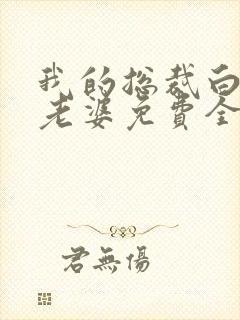 我的总裁白
老婆免费全
君無傷